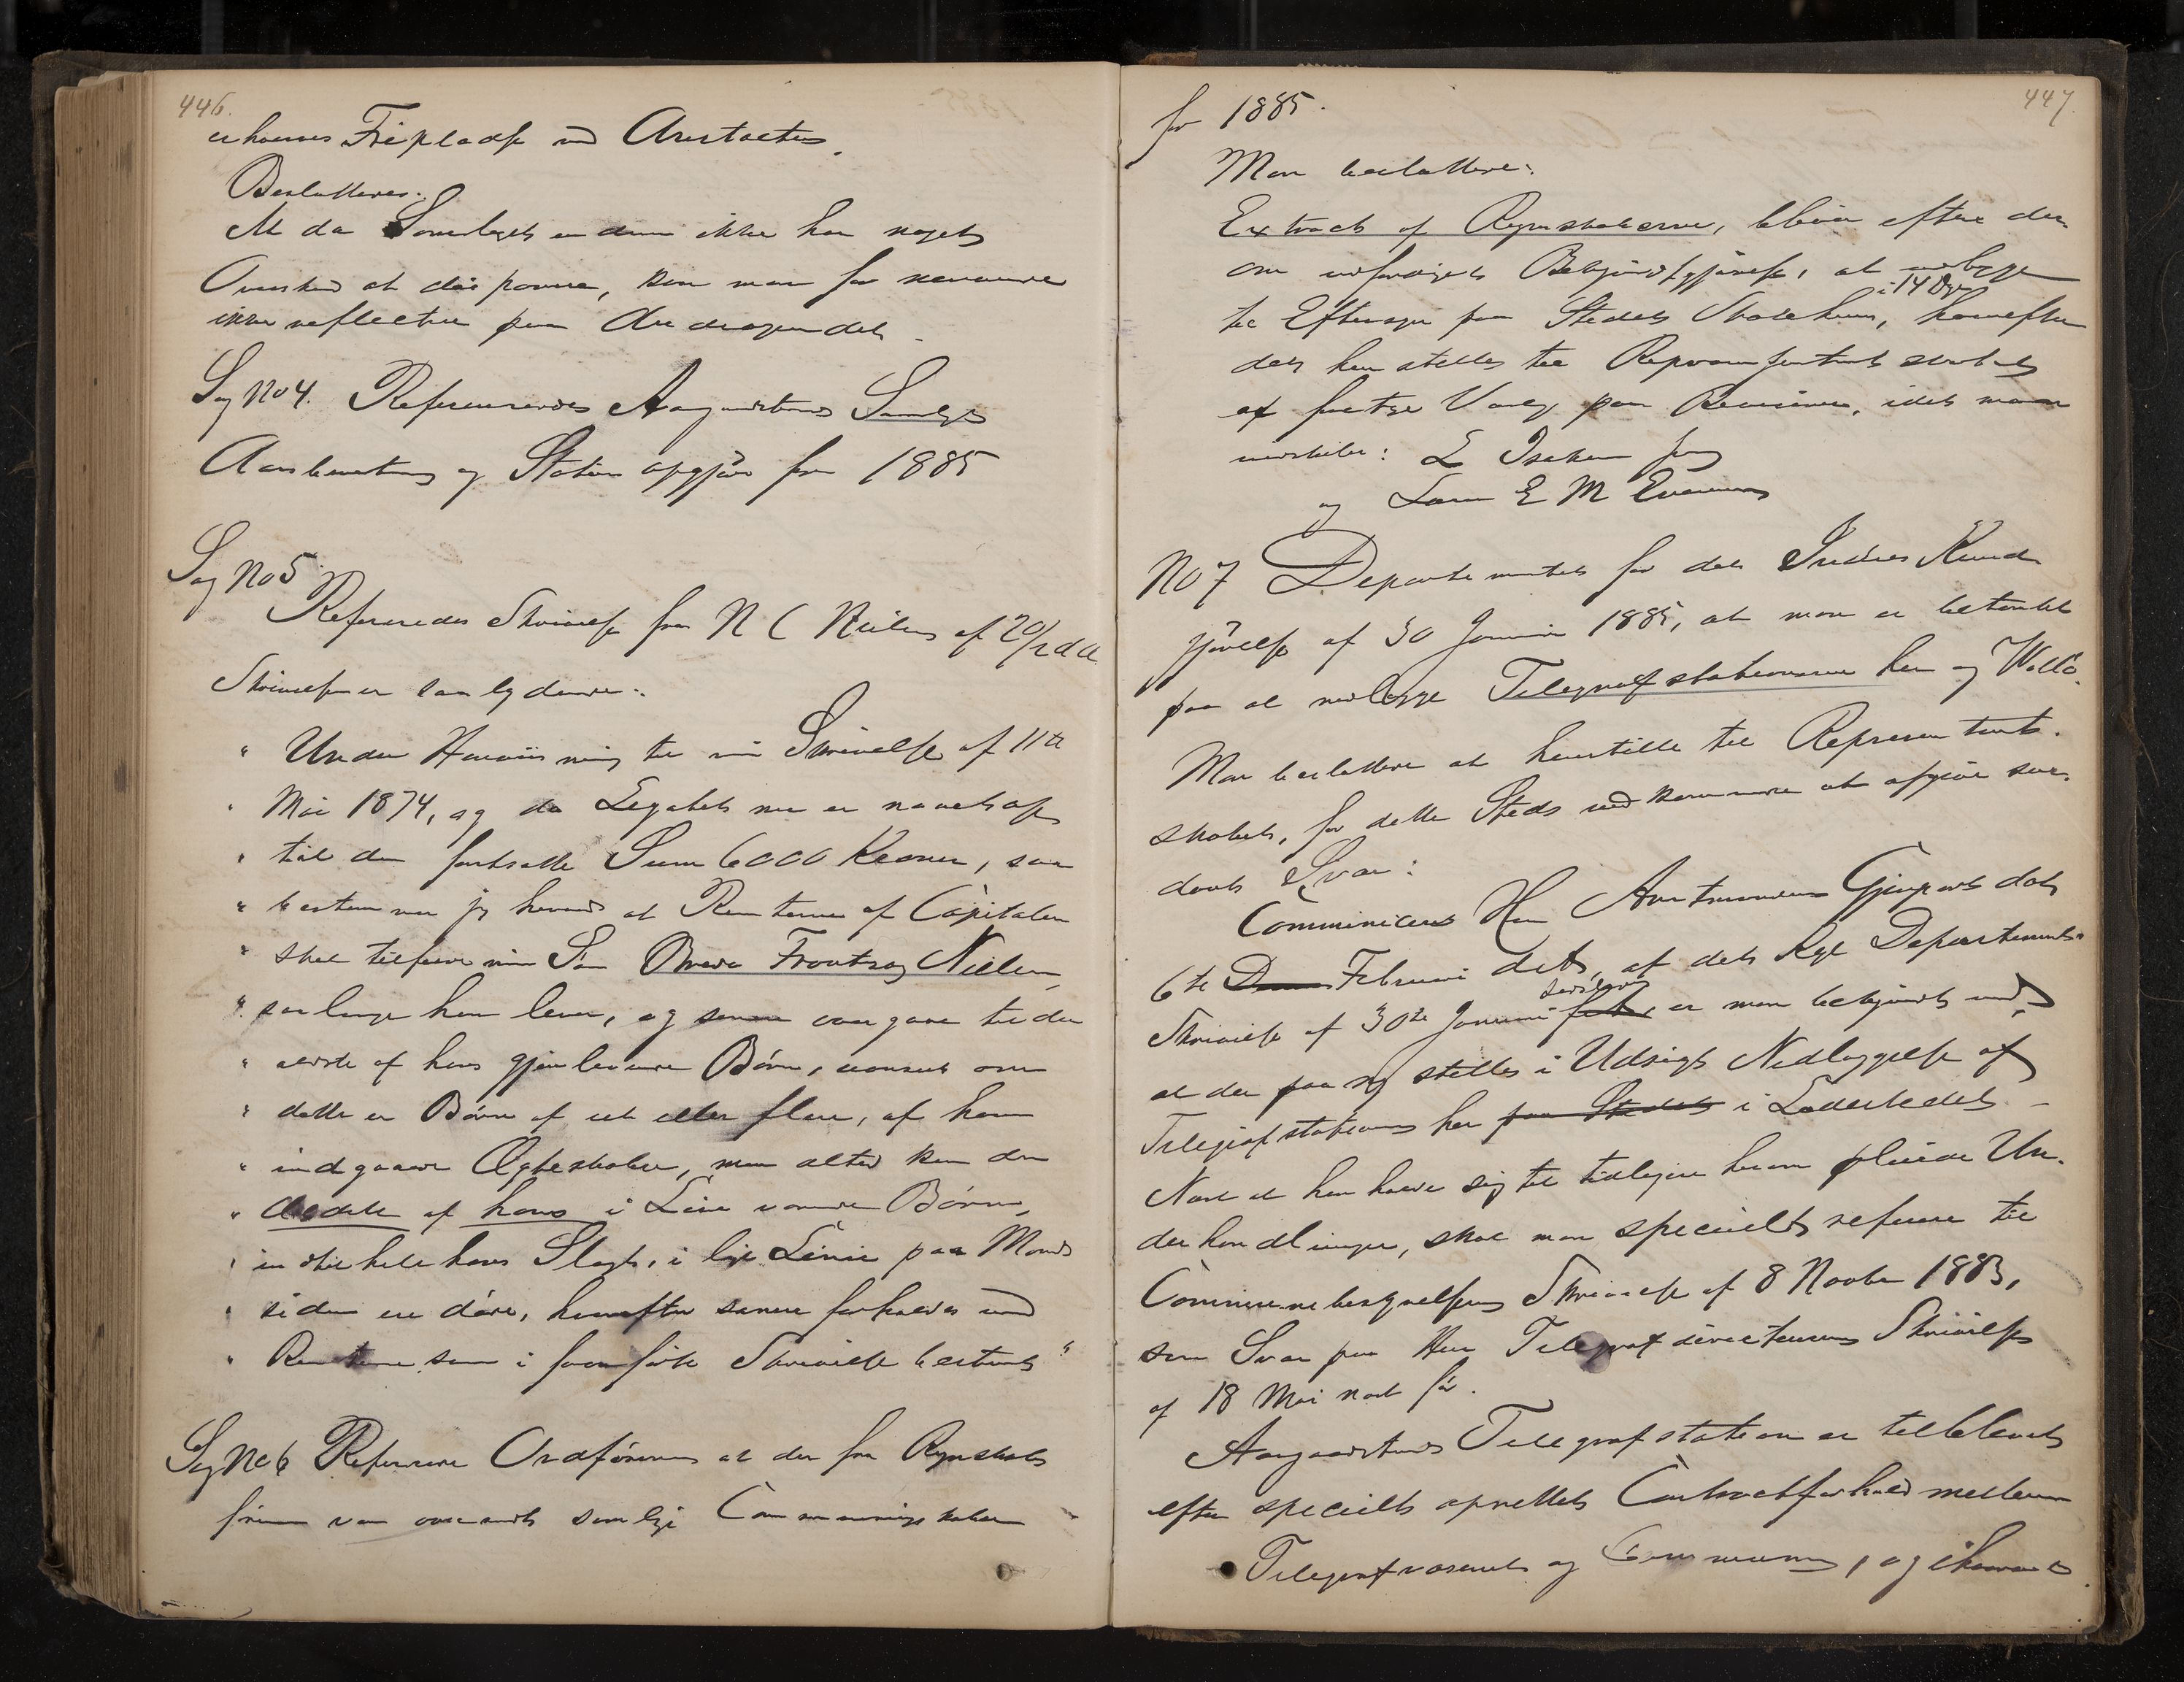 446.
erhverves Friplads ved Anstalten.
Besluttedes:
At da Samlaget endnu ikke har noget
Overskud at disponere, kan man for nærværende
ikke reflectere paa Andragendet.
Sag No 4. Refereredes Aasgaardstrands Samlags
Aarsberetning og Status opgjør for 1885
Sag No 5.
Refereredes Skrivelse fra N C Nielsen af 20/2 d A.
Skrivelsen er saalydende:
" Under Henviisning til min Skrivelse af 11te
" Mai 1874, og da Legatet nu er naaet op
" til den fortsatte Sum 6000 Kroner, saa
" bestemmer jeg herved at Renterne af Capitalen
" skal tilfalde min Søn Nielsen,
" saa længe han lever, og senere overgaar til den
" ældste af hans gjenlevende Børn, uanseet om
" dette er Børn af eet eller flere, af ham
" indgaaede Ægteskaber, men altid kun den
" ældste af hans i Live værende Børn,
" indtil hele hans Slægt, i lige Linie paa Mands
" siden er døde, hvorefter senere forholdes med
" Renterne som i førnævnte Skrivelse bestemt "
Sag No 6 Refererede Ordføreren at der fra Regnskabs
føreren var oversendt samtlige Communeregnskaber
447.
for 1885.
Man besluttede:
Extract af Regnskaberne, bliver efter der
om udfærdiget Bekjendtgjørelse, at udlægge
i 14 Dage
til Eftersyn paa Stedets Skolehuus, hvorefter
det henstilles til Repræsentantskabet
at foretage Valg paa Revisorer, idet man
indstiller: L Iversen jun
og Lars E M Evensen
No 7 Departementet for det Indres Kund
gjørelse af 30 Januar 1885, at man er betænkt
paa at nedlægge Telegrafstationerne her og Vallø.
Man besluttede at henstille til Repræsentant-
skabet, for dette Steds vedkommende at afgive saa-
dant Svar:
Communiceret Hr Amtmandens Gjenpart dat
6te Februar dA, af det Kgl Departements
Skrivelse af 30te Januar er man bekjendt med,
at der paa ny stilles i Udsigt Nedlæggelse af
Telegrafstationen her paa Stedet i Ladestedet -
Næst at henholde sig til tidligere herom pleiede Un-
derhandlinger, skal man specielt referere til
Communebestyrelsens Skrivelse af 8 Novbr 1883,
som Svar paa Herr Telegrafdirecteurens Skrivelse
af 18 Mai næst før.
Aasgaardstrands Telegrafstation er tilblevet
efter specielt oprettet Contractforhold mellem
Telegrafvæsenet og Communen, og